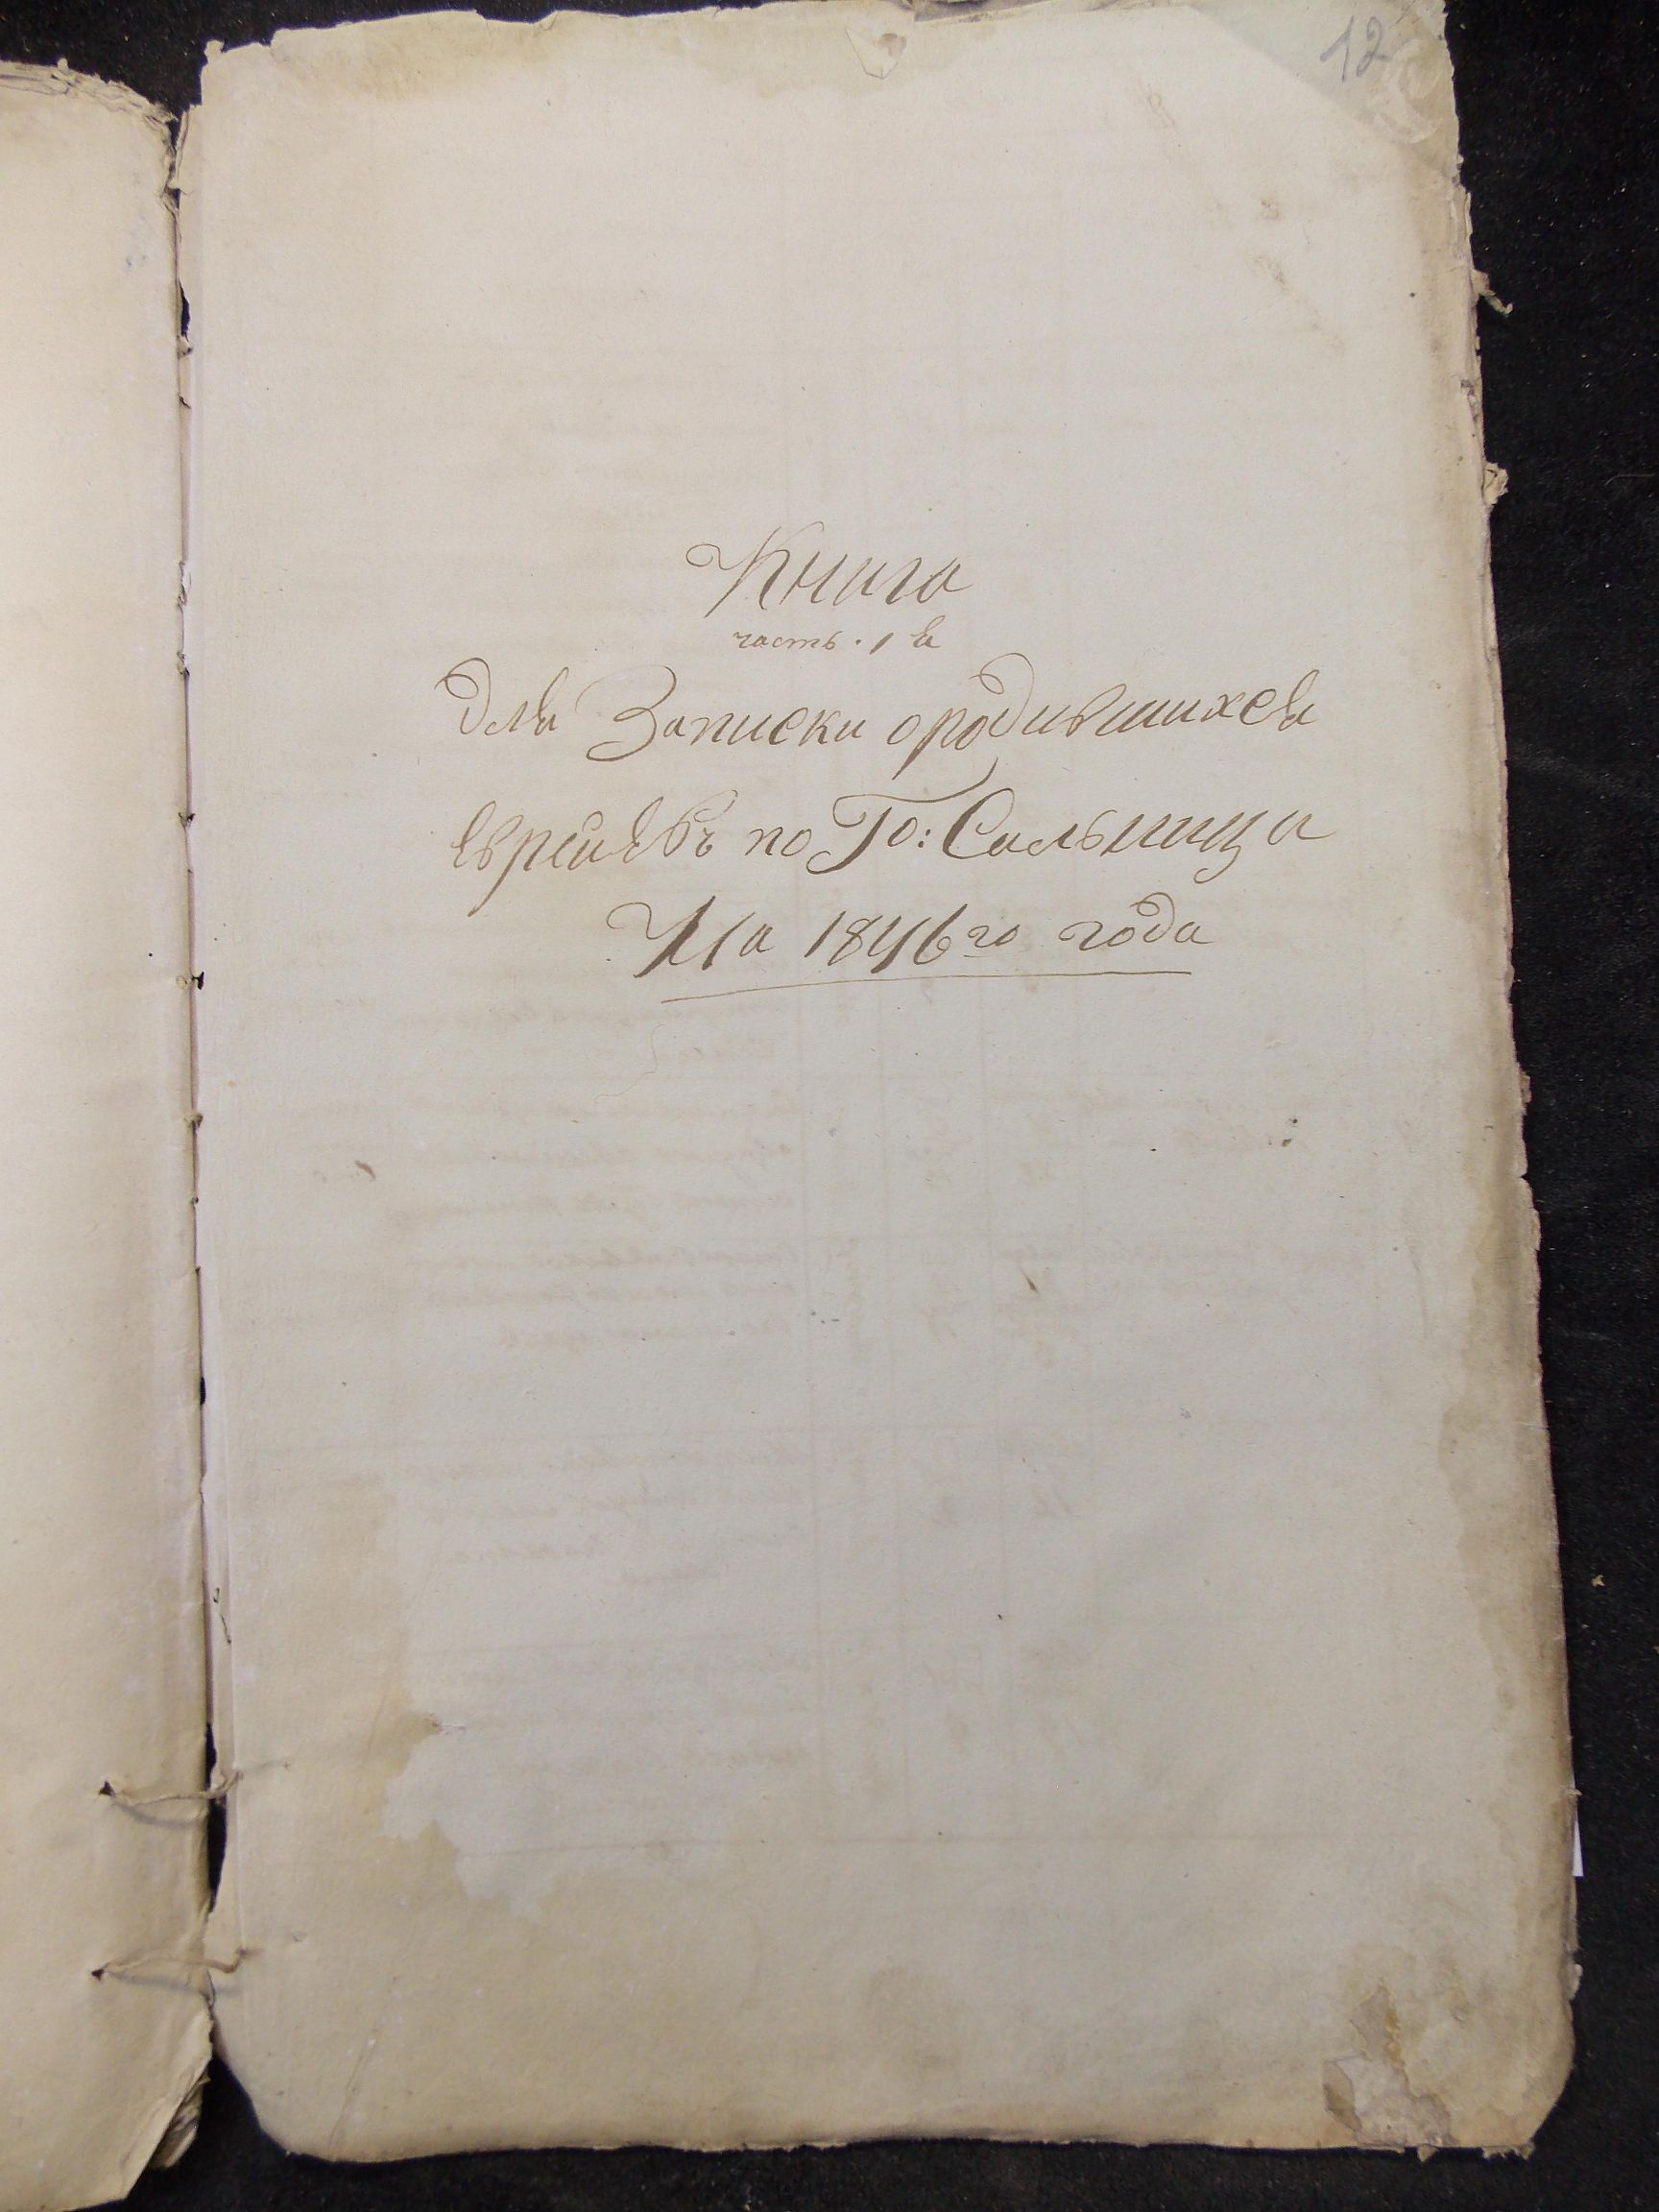 12
Книга
часть. 1я
для Записки о родившихся
евреяхъ по Го: Сальница
На 1846го года